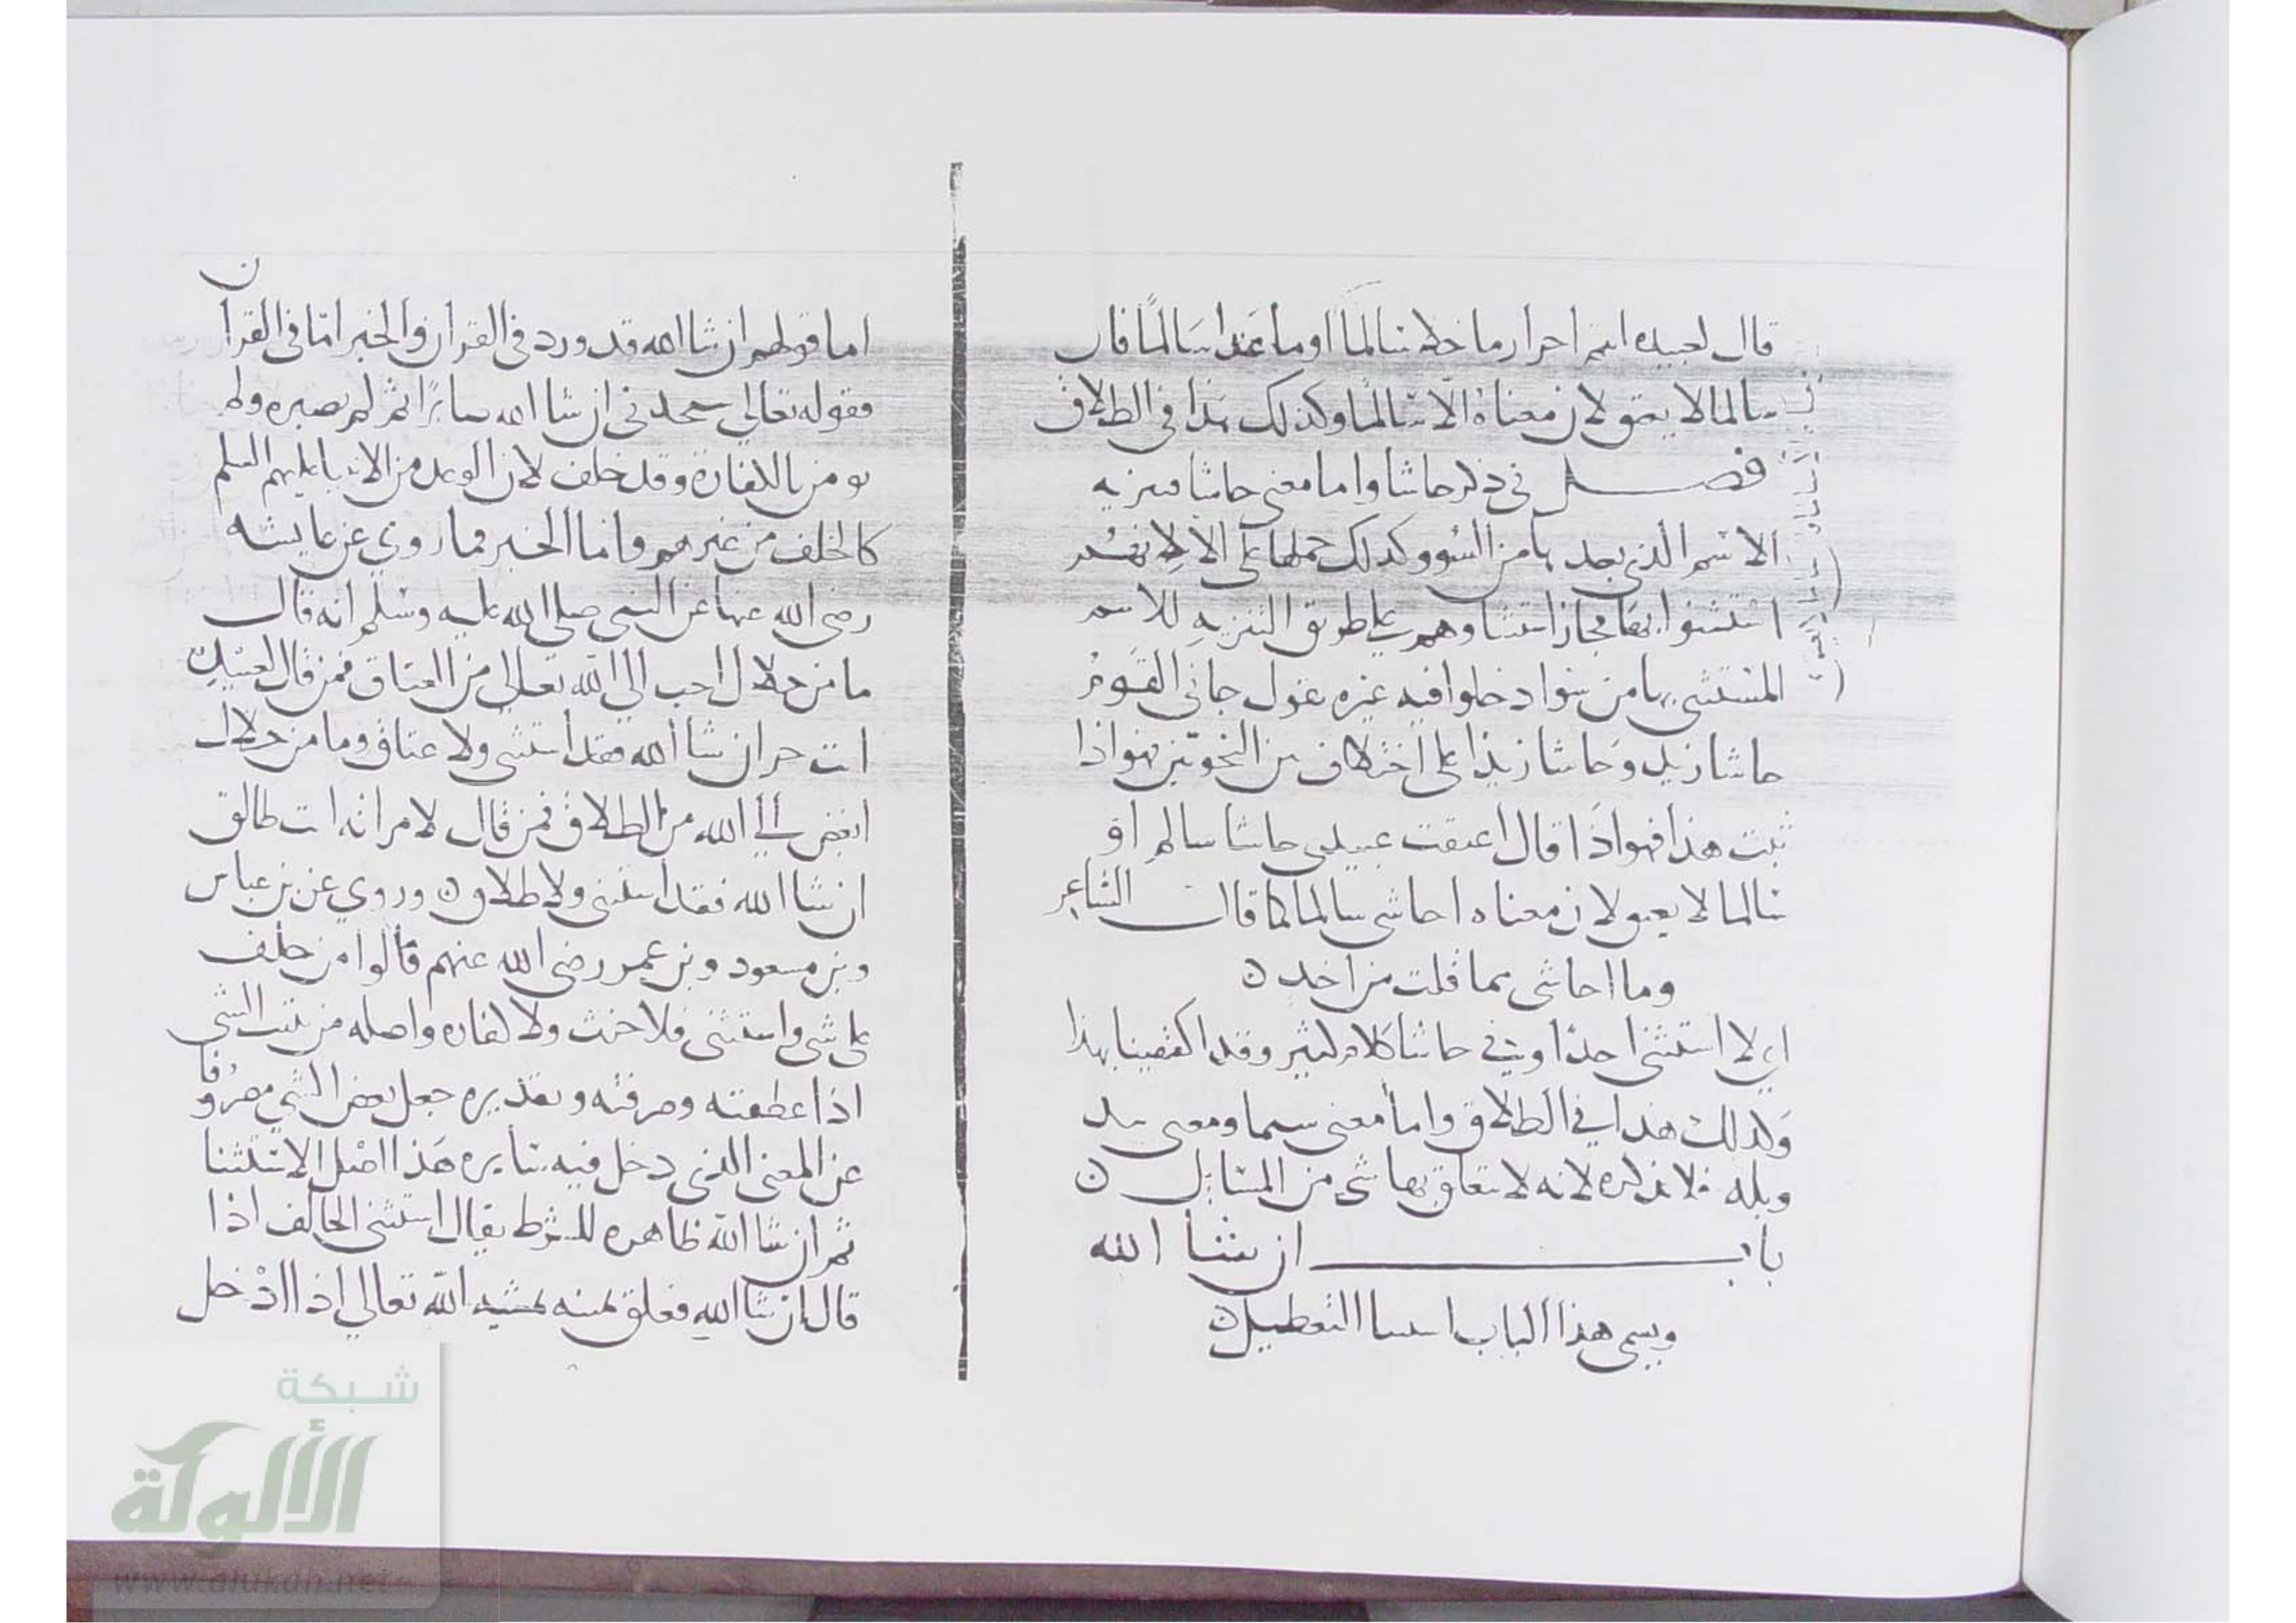 قال لعبيده انتم احرار ما خلا سالما او ما عدا سالما فان
سالما لا يعتق لان معناه الا سالما وكذلك هذا في الطلاق
فصل في ذكر حاشا واما معنى حاشا تنزيه
الاسم الذي بعدها من السوو كذلك حملها على الا لانهم
استثنوا بها مجاز استثنا وهم على طريق التنزيه للاسم
المستثنى بها من سوا دخلوا فيه غيره تقول جاني القوم
حاشا زيد وحاشا زيدا على اختلاف من النحويين فهو اذا
ثبت هذا فهو اذا قال اعتقت عبيدي حاشا سالم او
سالما لا يعتق لان معناه احاشي سالما كما قال الشاعر
وما احاشي مما قلت من احد ن
اي لا استثني احدا وفي حاشا كلام كثير وقد اكتفينا بهذا
وكذلك هذا في الطلاق واما معنى سيما ومعنى بيد
وبله فلا نذكره لانه لا يتعلق بها شي من المسايل ن
باب ان شا الله
ويسمى هذا الباب استثنا التعطيل ن
اما قولهم ان شا الله قد ورد في القران والخبر اما في القران
فقوله تعالى ستجدني ان شا الله صابرا ثم لم يصبر ولم
يومر بالكفارة وقد خلف لان الوعد من الانبيا عليهم السلم
كالحلف من غيرهم واما الخبر فما روي عن عايشه
رضي الله عنها عن النبي صلى الله عليه وسلم انه قال
ما من حلال احب الى الله تعالى من العتاق فمن قال لعبده
انت حر ان شا الله فقد استثنى ولا عتاق وما من حلال
ابغض الى الله من الطلاق فمن قال لامراته انت طالق
ان شا الله فقد استثنى ولا طلاق ن وروي عن بن عباس
وبن مسعود وبن عمر رضي الله عنهم قالوا من حلف
على شي واستثنى فلا حنث ولا كفاره واصله من ثنيت الشي
اذا عطفته وصرفته وتقديره جعل بعض الشي مصروفا
عن المعنى الذي دخل فيه سايره هذا اصل الاستثنا
ثم ان شا الله ظاهره للشرط يقال استثنى الحالف اذا
قال ان شا الله فعلق يمينه بمشيه الله تعالى اذا ادخل
شبكة
الألوكة
www.alukah.net